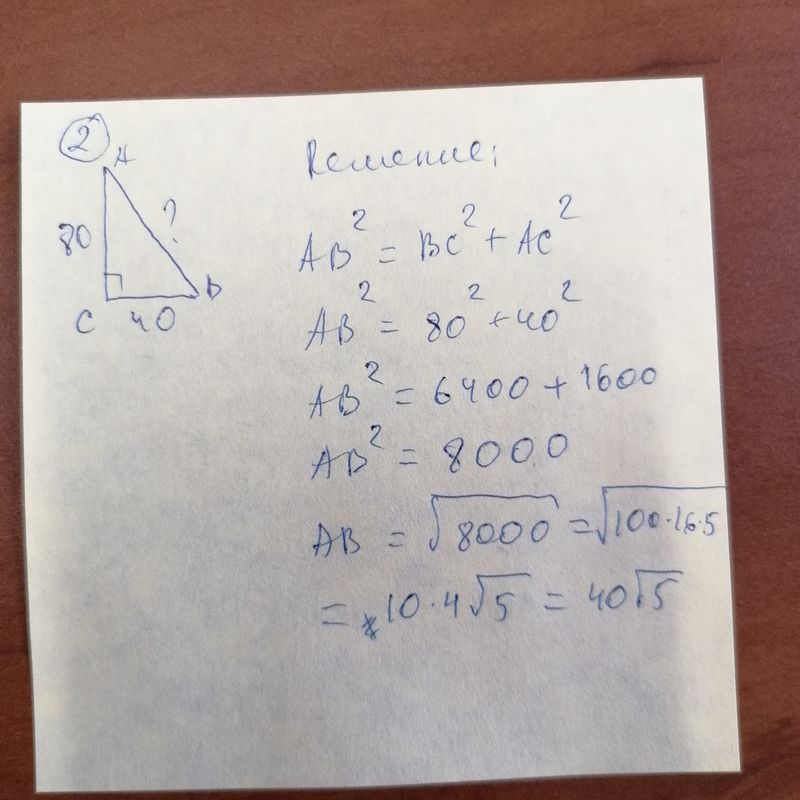 2
A
80
?
C
B
40
Решение:
AB² = BC² + AC²
AB² = 80² + 40²
AB² = 6400 + 1600
AB² = 8000
AB = √8000 = √100·16·5
= 10·4√5 = 40√5